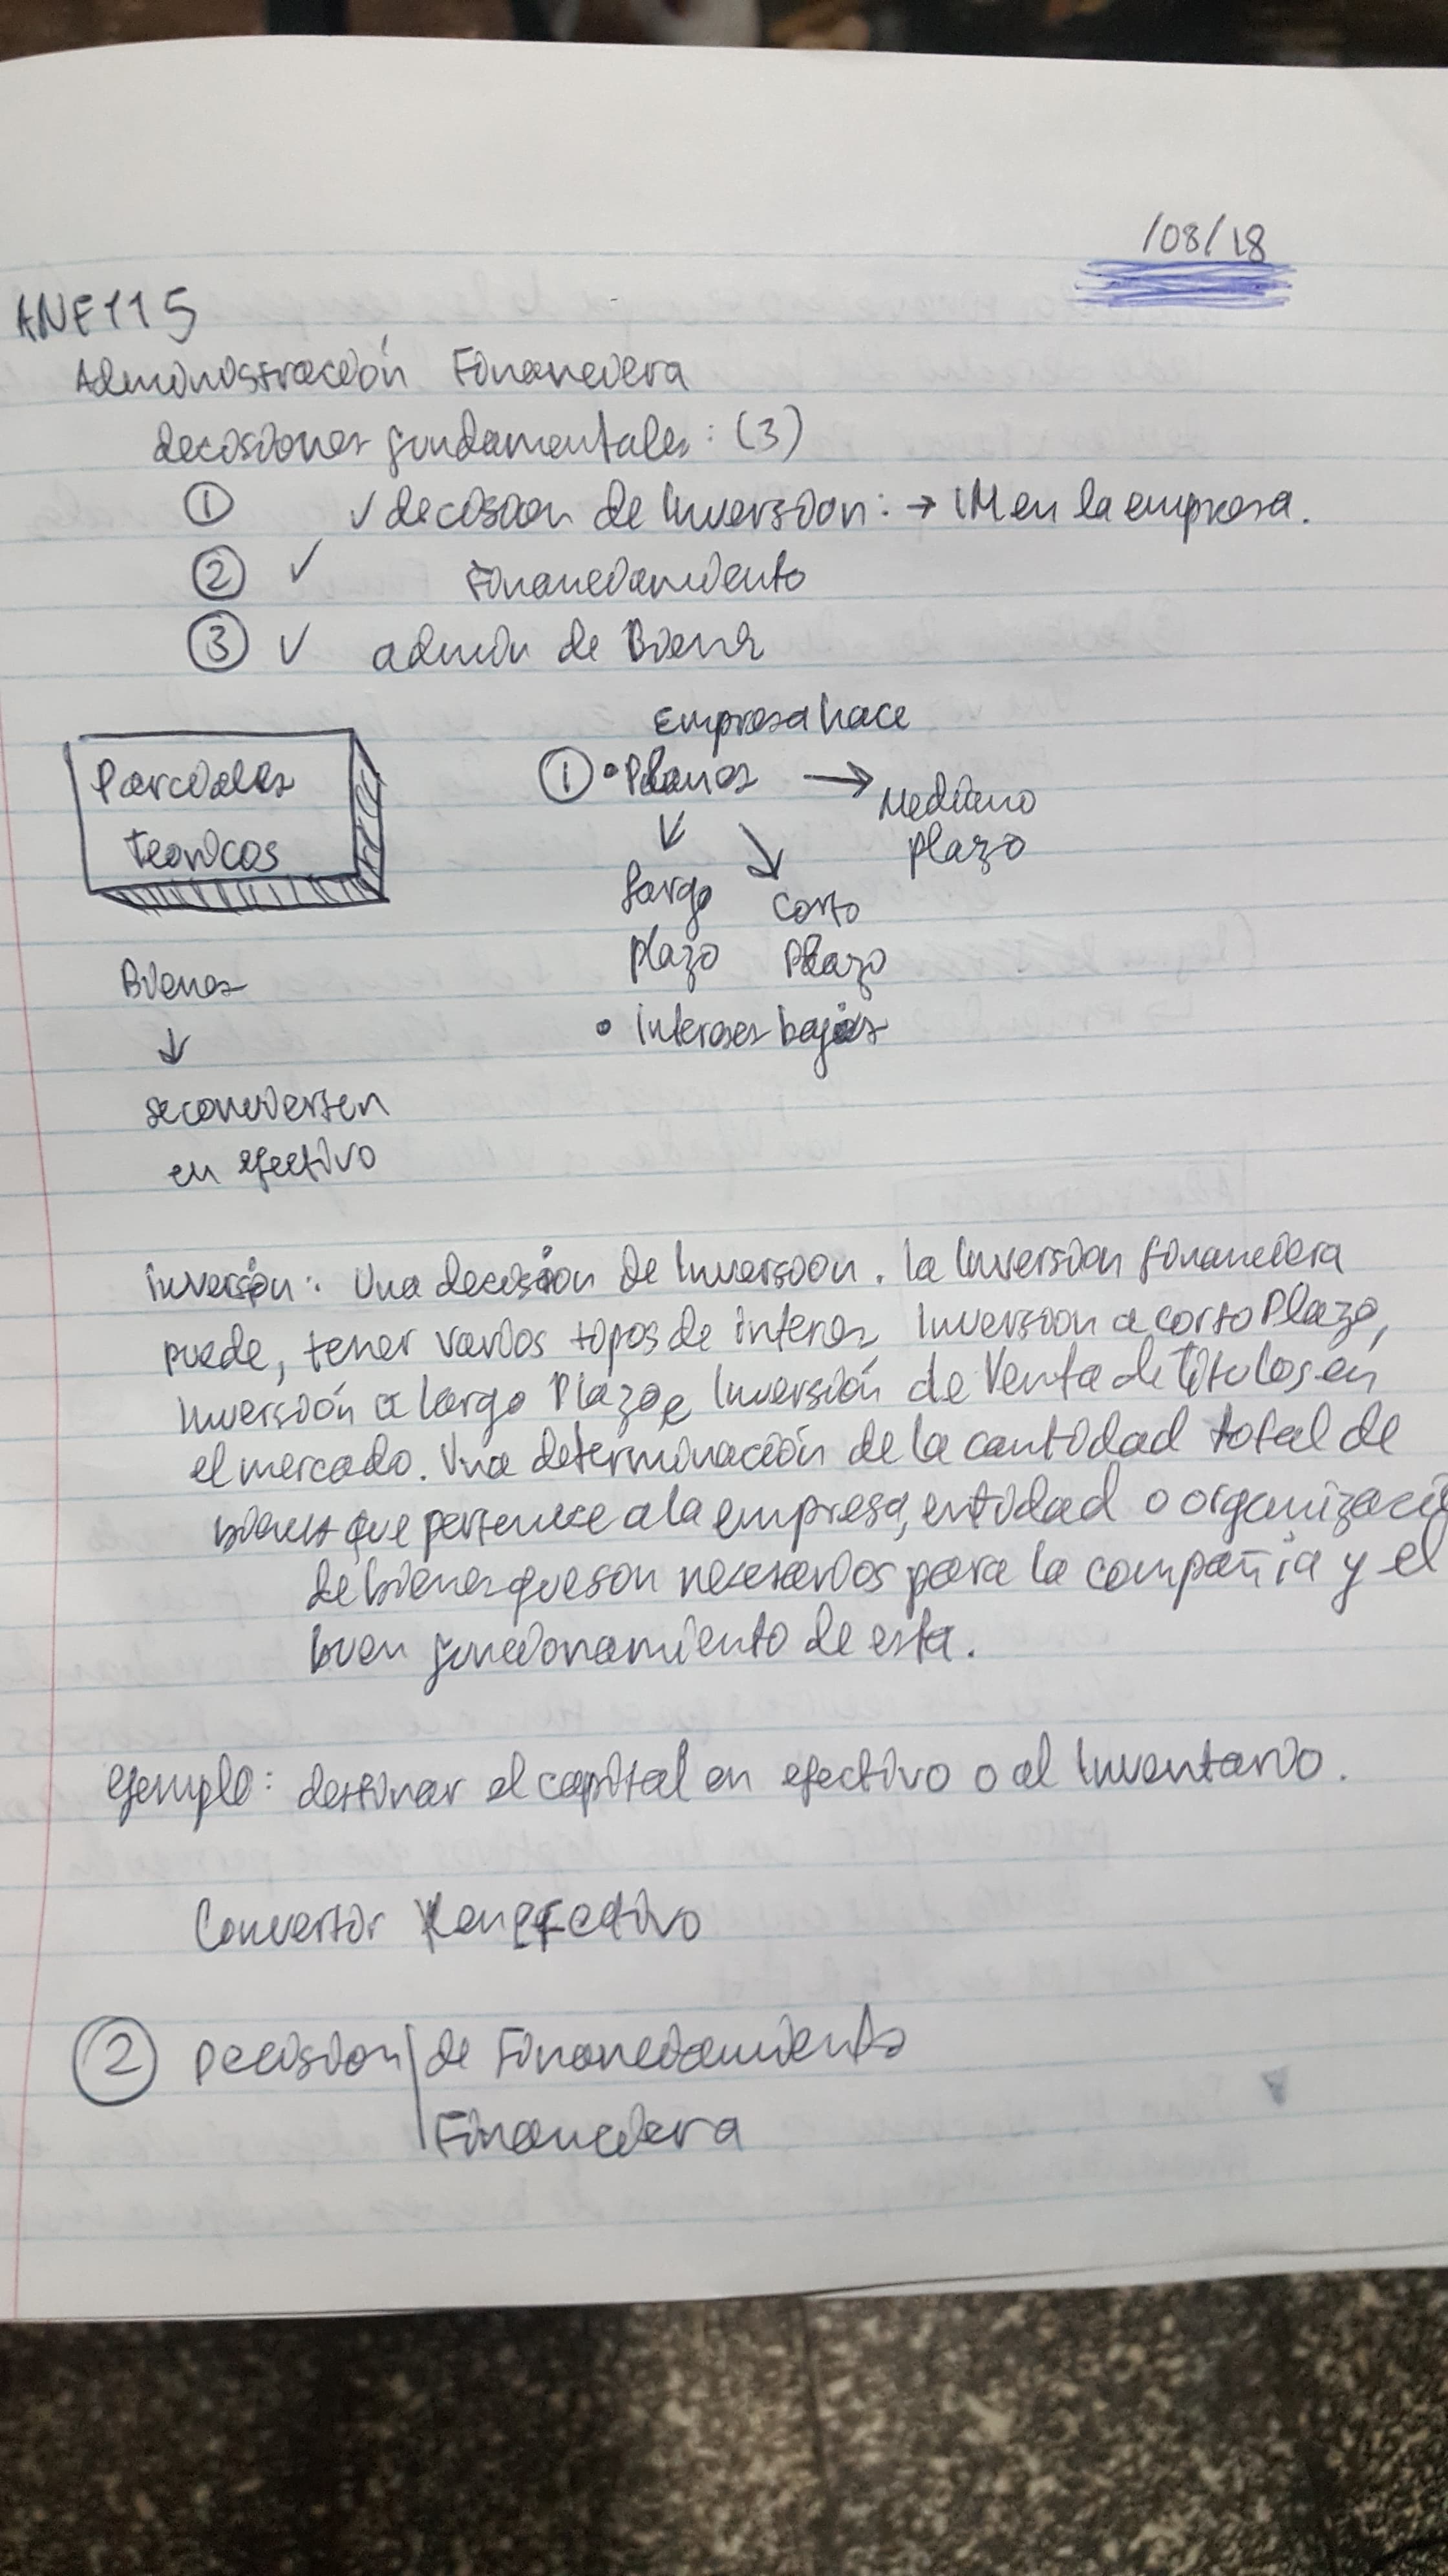 /08/18
ANF115
Administración Financiera
decisiones fundamentales: (3)
① ✓decision de Inversion: → IM en la empresa.
② ✓ Financiamiento
③ ✓ admin de Bienes
Empresa hace
① • Planes → Mediano plazo
↓ ↘
largo plazo
corto plazo
• interses bajos
Parciales
teoricos
Bienes
↓
se convierten
en efectivo
inversión: Una decisión de Inversion. la Inversion financiera
puede, tener varios tipos de interes Inversion a corto Plazo,
Inversión a largo Plazo e Inversión de Venta de titulos en
el mercado. Una determinación de la cantidad total de
bienes que pertenece a la empresa, entidad o organizaci
de bienes que son necesarios para la compañia y el
buen funcionamiento de esta.
ejemplo: destinar el capital en efectivo o al Inventario.
Convertir en efectivo
② Decision | de Financiamiento
Financiera